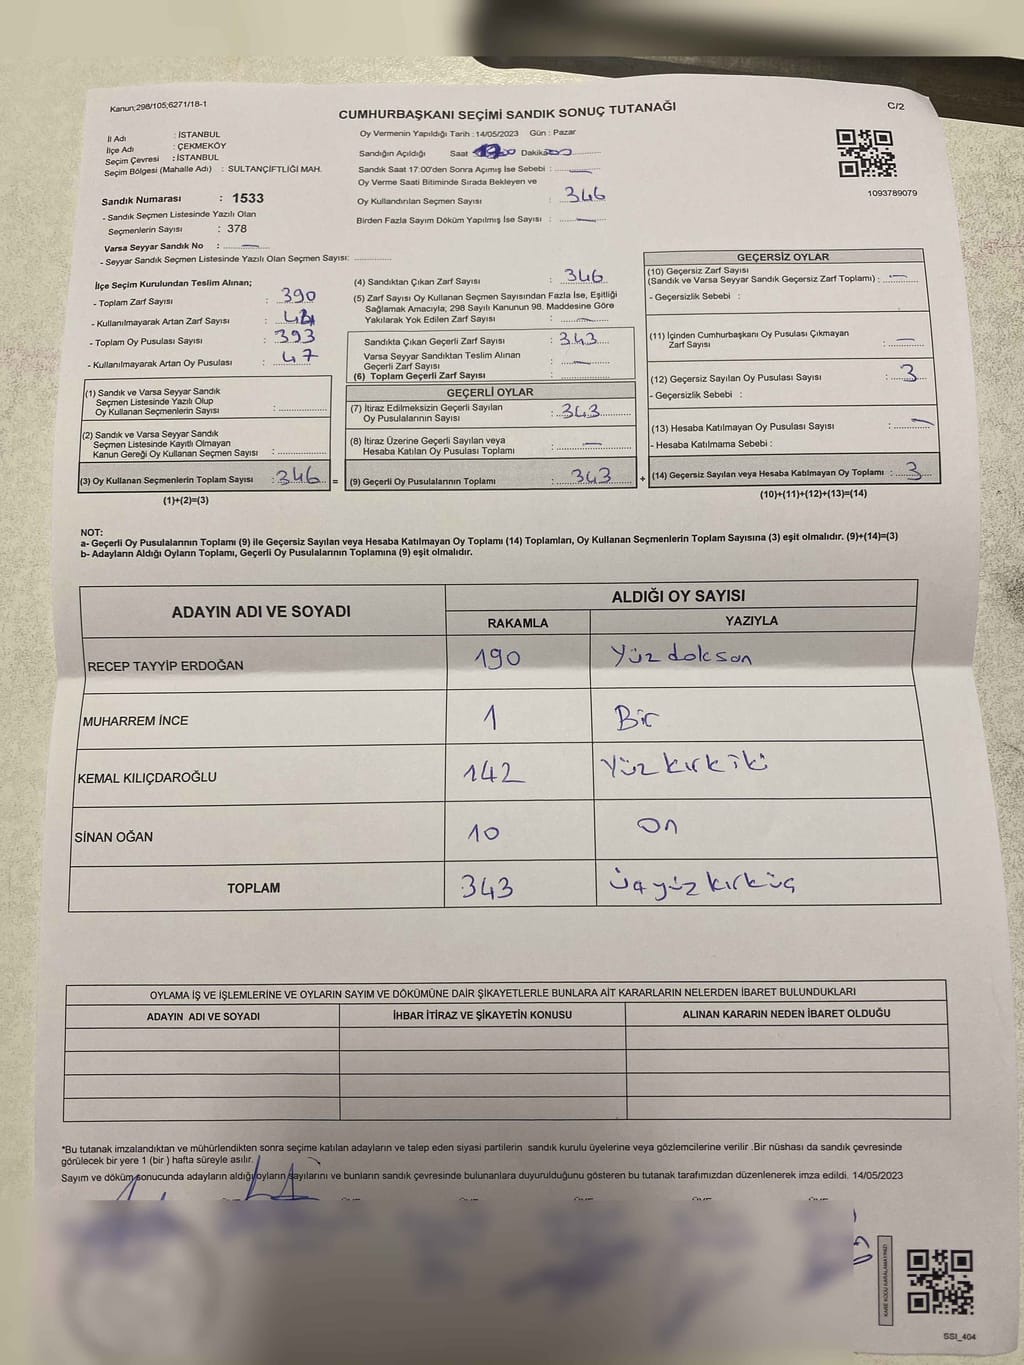 Kanun;298/105;6271/18-1
CUMHURBAŞKANI SEÇİMİ SANDIK SONUÇ TUTANAĞI
C/2
İl Adı : İSTANBUL
İlçe Adı : ÇEKMEKÖY
Seçim Çevresi : İSTANBUL
Seçim Bölgesi (Mahalle Adı) : SULTANÇİFTLİĞİ MAH.
Sandık Numarası : 1533
- Sandık Seçmen Listesinde Yazılı Olan
Seçmenlerin Sayısı : 378
Varsa Seyyar Sandık No : —
- Seyyar Sandık Seçmen Listesinde Yazılı Olan Seçmen Sayısı:
Oy Vermenin Yapıldığı Tarih : 14/05/2023 Gün : Pazar
Sandığın Açıldığı Saat Dakika
Sandık Saat 17:00'den Sonra Açımış İse Sebebi : —
Oy Verme Saati Bitiminde Sırada Bekleyen ve
Oy Kullandırılan Seçmen Sayısı : 346
Birden Fazla Sayım Döküm Yapılmış İse Sayısı : —
1093789079
İlçe Seçim Kurulundan Teslim Alınan;
- Toplam Zarf Sayısı : 390
- Kullanılmayarak Artan Zarf Sayısı :
- Toplam Oy Pusulası Sayısı : 393
- Kullanılmayarak Artan Oy Pusulası : 47
(1) Sandık ve Varsa Seyyar Sandık
Seçmen Listesinde Yazılı Olup
Oy Kullanan Seçmenlerin Sayısı :
(2) Sandık ve Varsa Seyyar Sandık
Seçmen Listesinde Kayıtlı Olmayan
Kanun Gereği Oy Kullanan Seçmen Sayısı :
(3) Oy Kullanan Seçmenlerin Toplam Sayısı : 346 =
(1)+(2)=(3)
(4) Sandıktan Çıkan Zarf Sayısı : 346
(5) Zarf Sayısı Oy Kullanan Seçmen Sayısından Fazla İse, Eşitliği
Sağlamak Amacıyla; 298 Sayılı Kanunun 98. Maddesine Göre
Yakılarak Yok Edilen Zarf Sayısı : —
Sandıkta Çıkan Geçerli Zarf Sayısı : 343
Varsa Seyyar Sandıktan Teslim Alınan
Geçerli Zarf Sayısı : —
(6) Toplam Geçerli Zarf Sayısı :
GEÇERLİ OYLAR
(7) İtiraz Edilmeksizin Geçerli Sayılan
Oy Pusulalarının Sayısı : 343
(8) İtiraz Üzerine Geçerli Sayılan veya
Hesaba Katılan Oy Pusulası Toplamı : —
(9) Geçerli Oy Pusulalarının Toplamı : 343 +
GEÇERSİZ OYLAR
(10) Geçersiz Zarf Sayısı
(Sandık ve Varsa Seyyar Sandık Geçersiz Zarf Toplamı) : —
- Geçersizlik Sebebi :
(11) İçinden Cumhurbaşkanı Oy Pusulası Çıkmayan
Zarf Sayısı : —
(12) Geçersiz Sayılan Oy Pusulası Sayısı : 3
- Geçersizlik Sebebi :
(13) Hesaba Katılmayan Oy Pusulası Sayısı : —
- Hesaba Katılmama Sebebi :
(14) Geçersiz Sayılan veya Hesaba Katılmayan Oy Toplamı : 3
(10)+(11)+(12)+(13)=(14)
NOT:
a- Geçerli Oy Pusulalarının Toplamı (9) ile Geçersiz Sayılan veya Hesaba Katılmayan Oy Toplamı (14) Toplamları, Oy Kullanan Seçmenlerin Toplam Sayısına (3) eşit olmalıdır. (9)+(14)=(3)
b- Adayların Aldığı Oyların Toplamı, Geçerli Oy Pusulalarının Toplamına (9) eşit olmalıdır.
ADAYIN ADI VE SOYADI ALDIĞI OY SAYISI
RAKAMLA YAZIYLA
RECEP TAYYİP ERDOĞAN 190 Yüz doksan
MUHARREM İNCE 1 Bir
KEMAL KILIÇDAROĞLU 142 Yüz kırk iki
SİNAN OĞAN 10 On
TOPLAM 343 üç yüz kırk üç
OYLAMA İŞ VE İŞLEMLERİNE VE OYLARIN SAYIM VE DÖKÜMÜNE DAİR ŞİKAYETLERLE BUNLARA AİT KARARLARIN NELERDEN İBARET BULUNDUKLARI
ADAYIN ADI VE SOYADI İHBAR İTİRAZ VE ŞİKAYETİN KONUSU ALINAN KARARIN NEDEN İBARET OLDUĞU
*Bu tutanak imzalandıktan ve mühürlendikten sonra seçime katılan adayların ve talep eden siyasi partilerin sandık kurulu üyelerine veya gözlemcilerine verilir .Bir nüshası da sandık çevresinde
görülecek bir yere 1 (bir ) hafta süreyle asılır.
Sayım ve döküm sonucunda adayların aldığı oyların sayılarını ve bunların sandık çevresinde bulunanlara duyurulduğunu gösteren bu tutanak tarafımızdan düzenlenerek imza edildi. 14/05/2023
KARE KODU KARALAMAYINIZ!
SSI_404